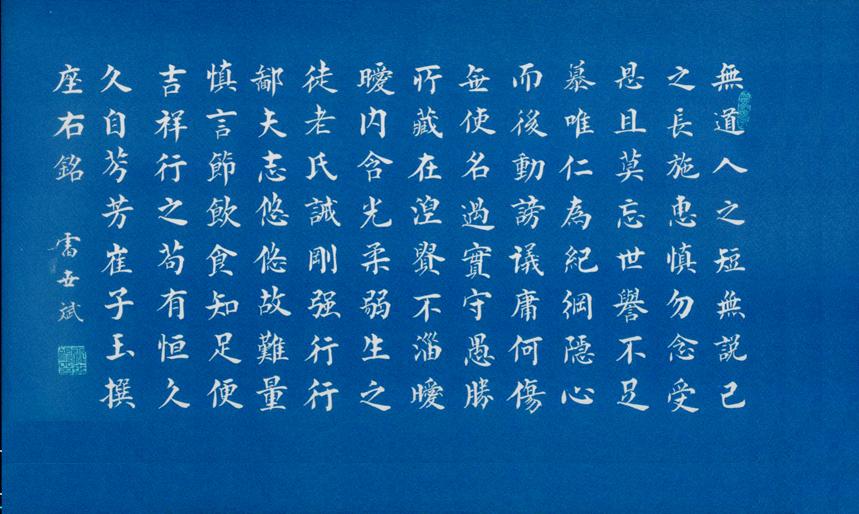 無道人之短無説己
之長施恵慎勿念受
恩且莫忘世譽不足
慕唯仁為紀綱隠心
而後動謗議庸何傷
無使名過實守愚勝
所藏在涅貴不淄曖
曖内含光柔弱生之
徒老氏誠剛强行行
鄙夫志悠悠故難量
慎言節飲食知足便
吉祥行之苟有恒久
久自芬芳崔子玉撰
座右銘 雷世斌